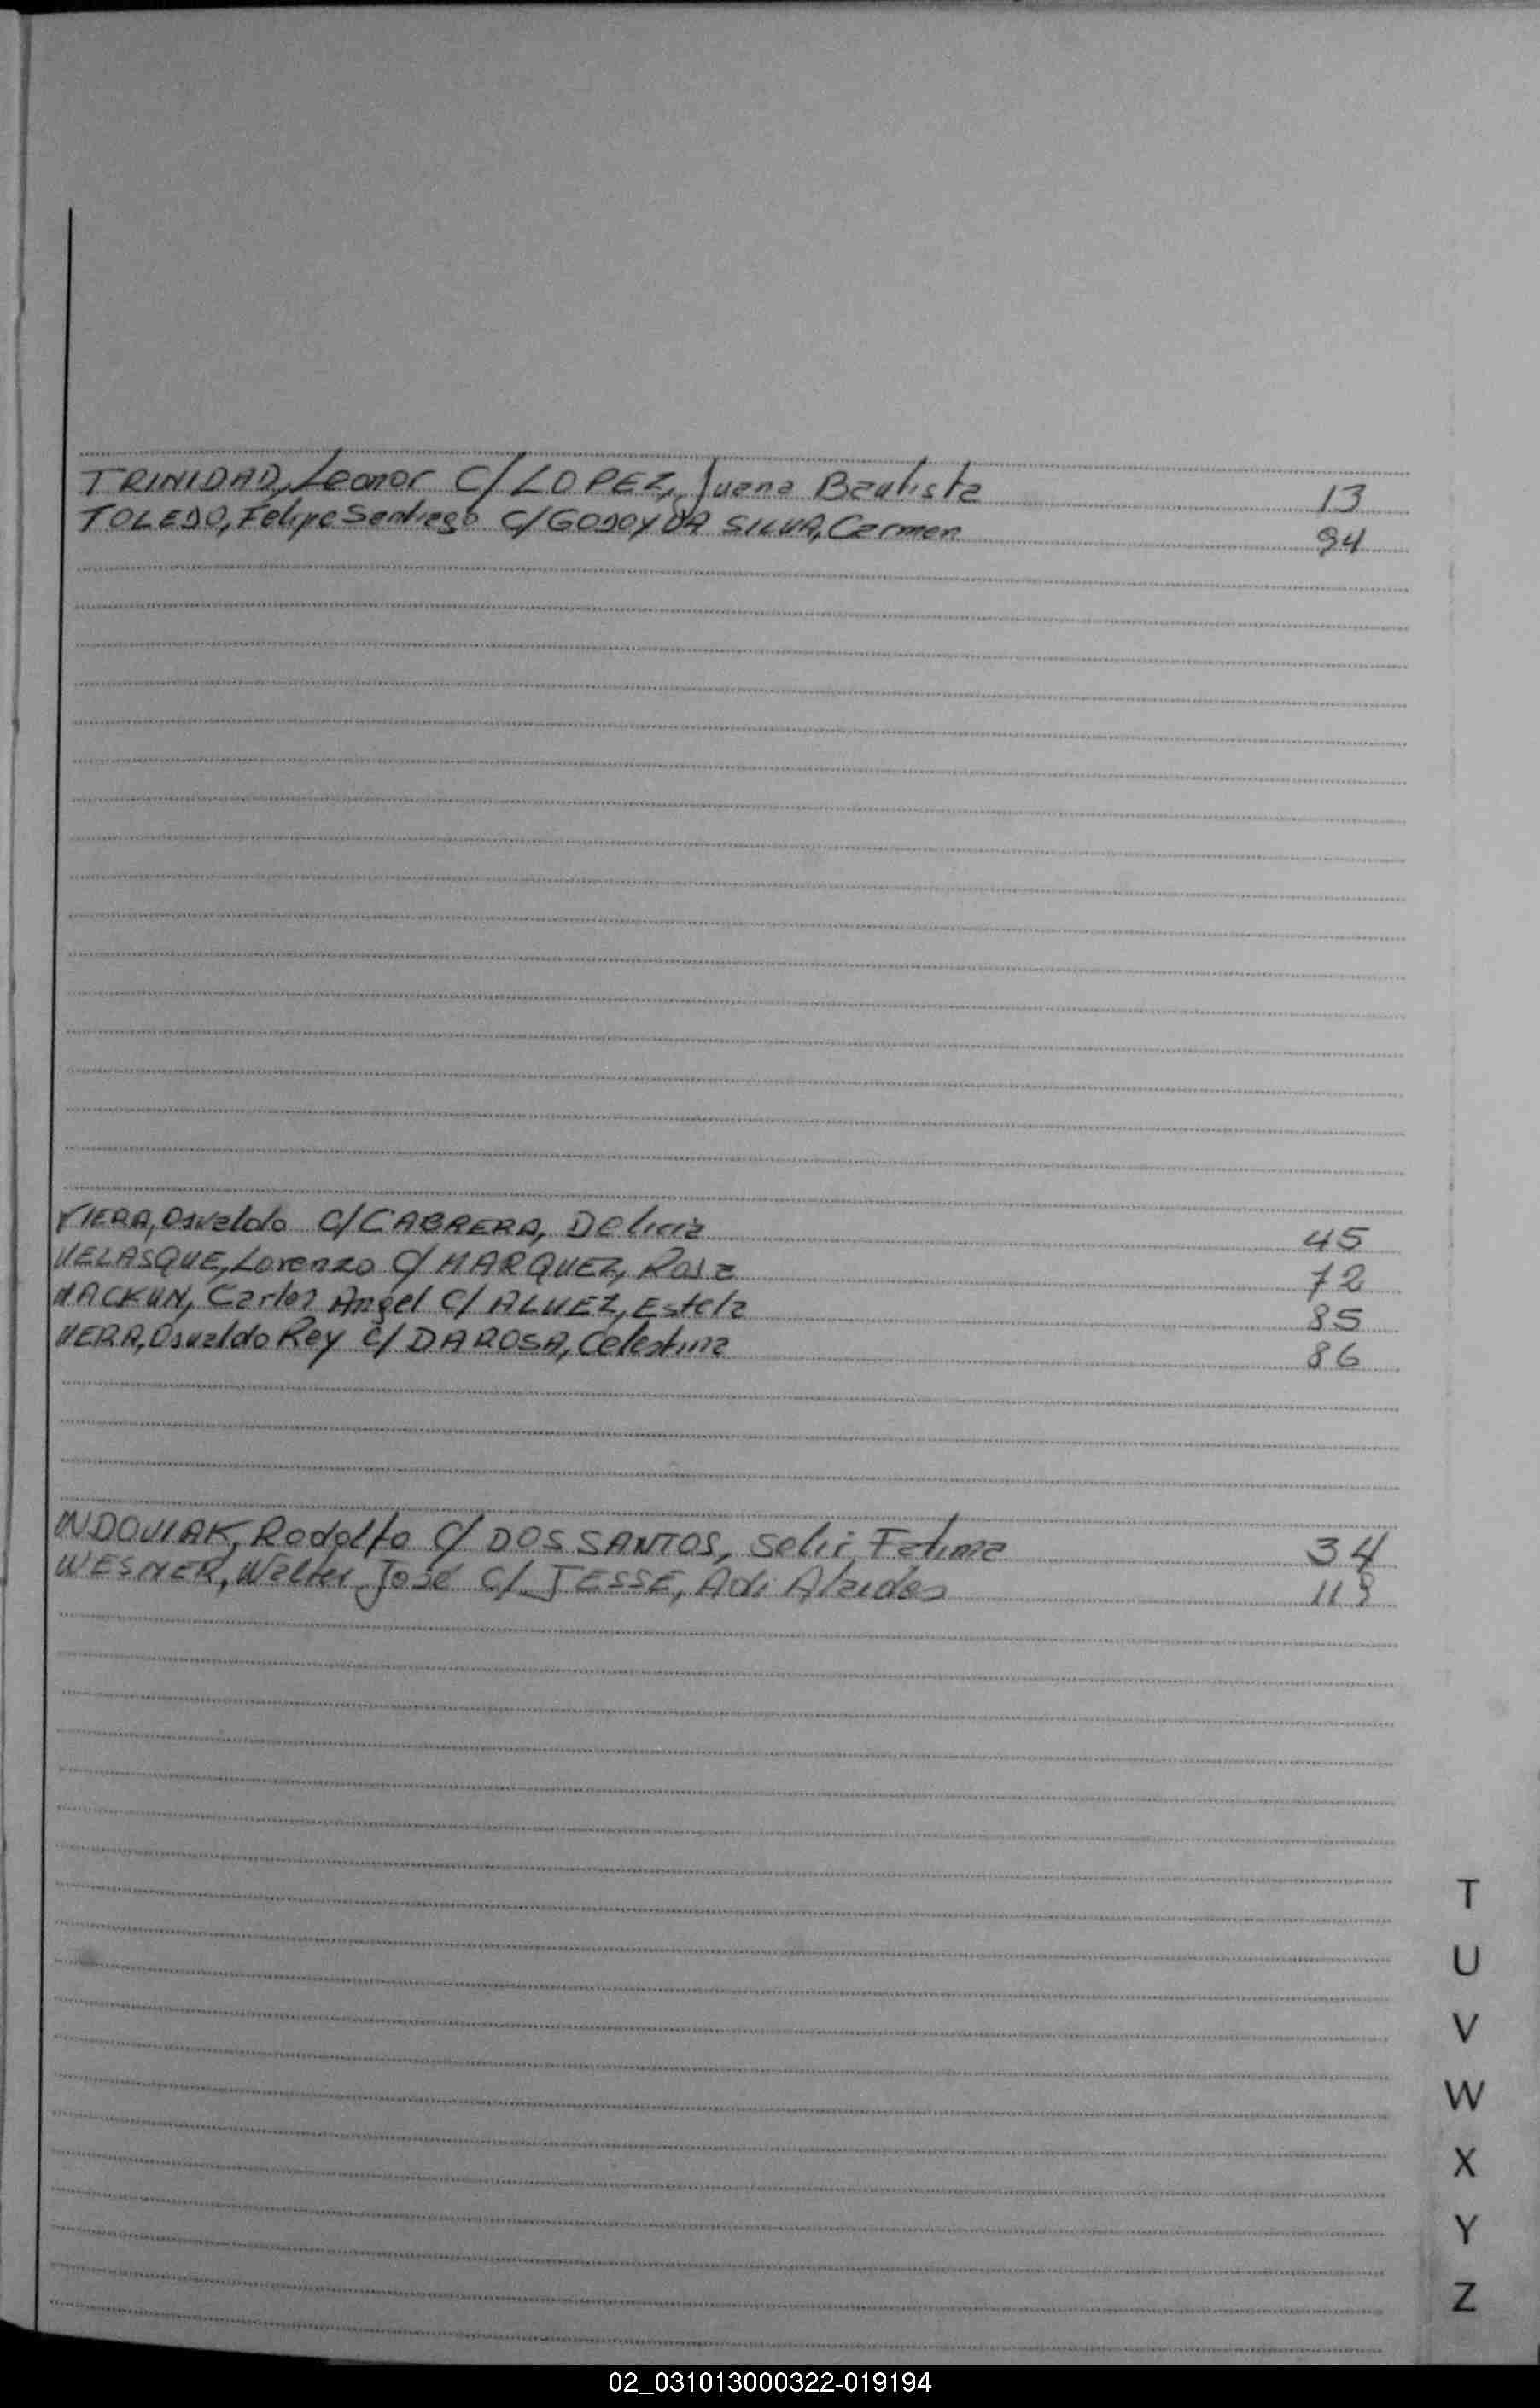 TRINIDAD, Leonor C/ LOPEZ, Juana Bautista 13
TOLEDO, Felipe Santiago C/ GODOY DA SILVA, Carmen 94
VIERA, Osvaldo C/ CABRERA, Delicia 45
VELASQUE, Lorenzo C/ MARQUEZ, Rosa 72
Carlos Angel C/ ALVEZ, Estela 85
VERA, Osvaldo Rey C/ DAROSA, Celestina 86
WDOVIAK, Rodolfo C/ DOS SANTOS, Seli Fatima 34
WESNER, Walter José C/ JESSE, Adi Alaides
T
U
V
W
X
Y
Z
02_031013000322-019194